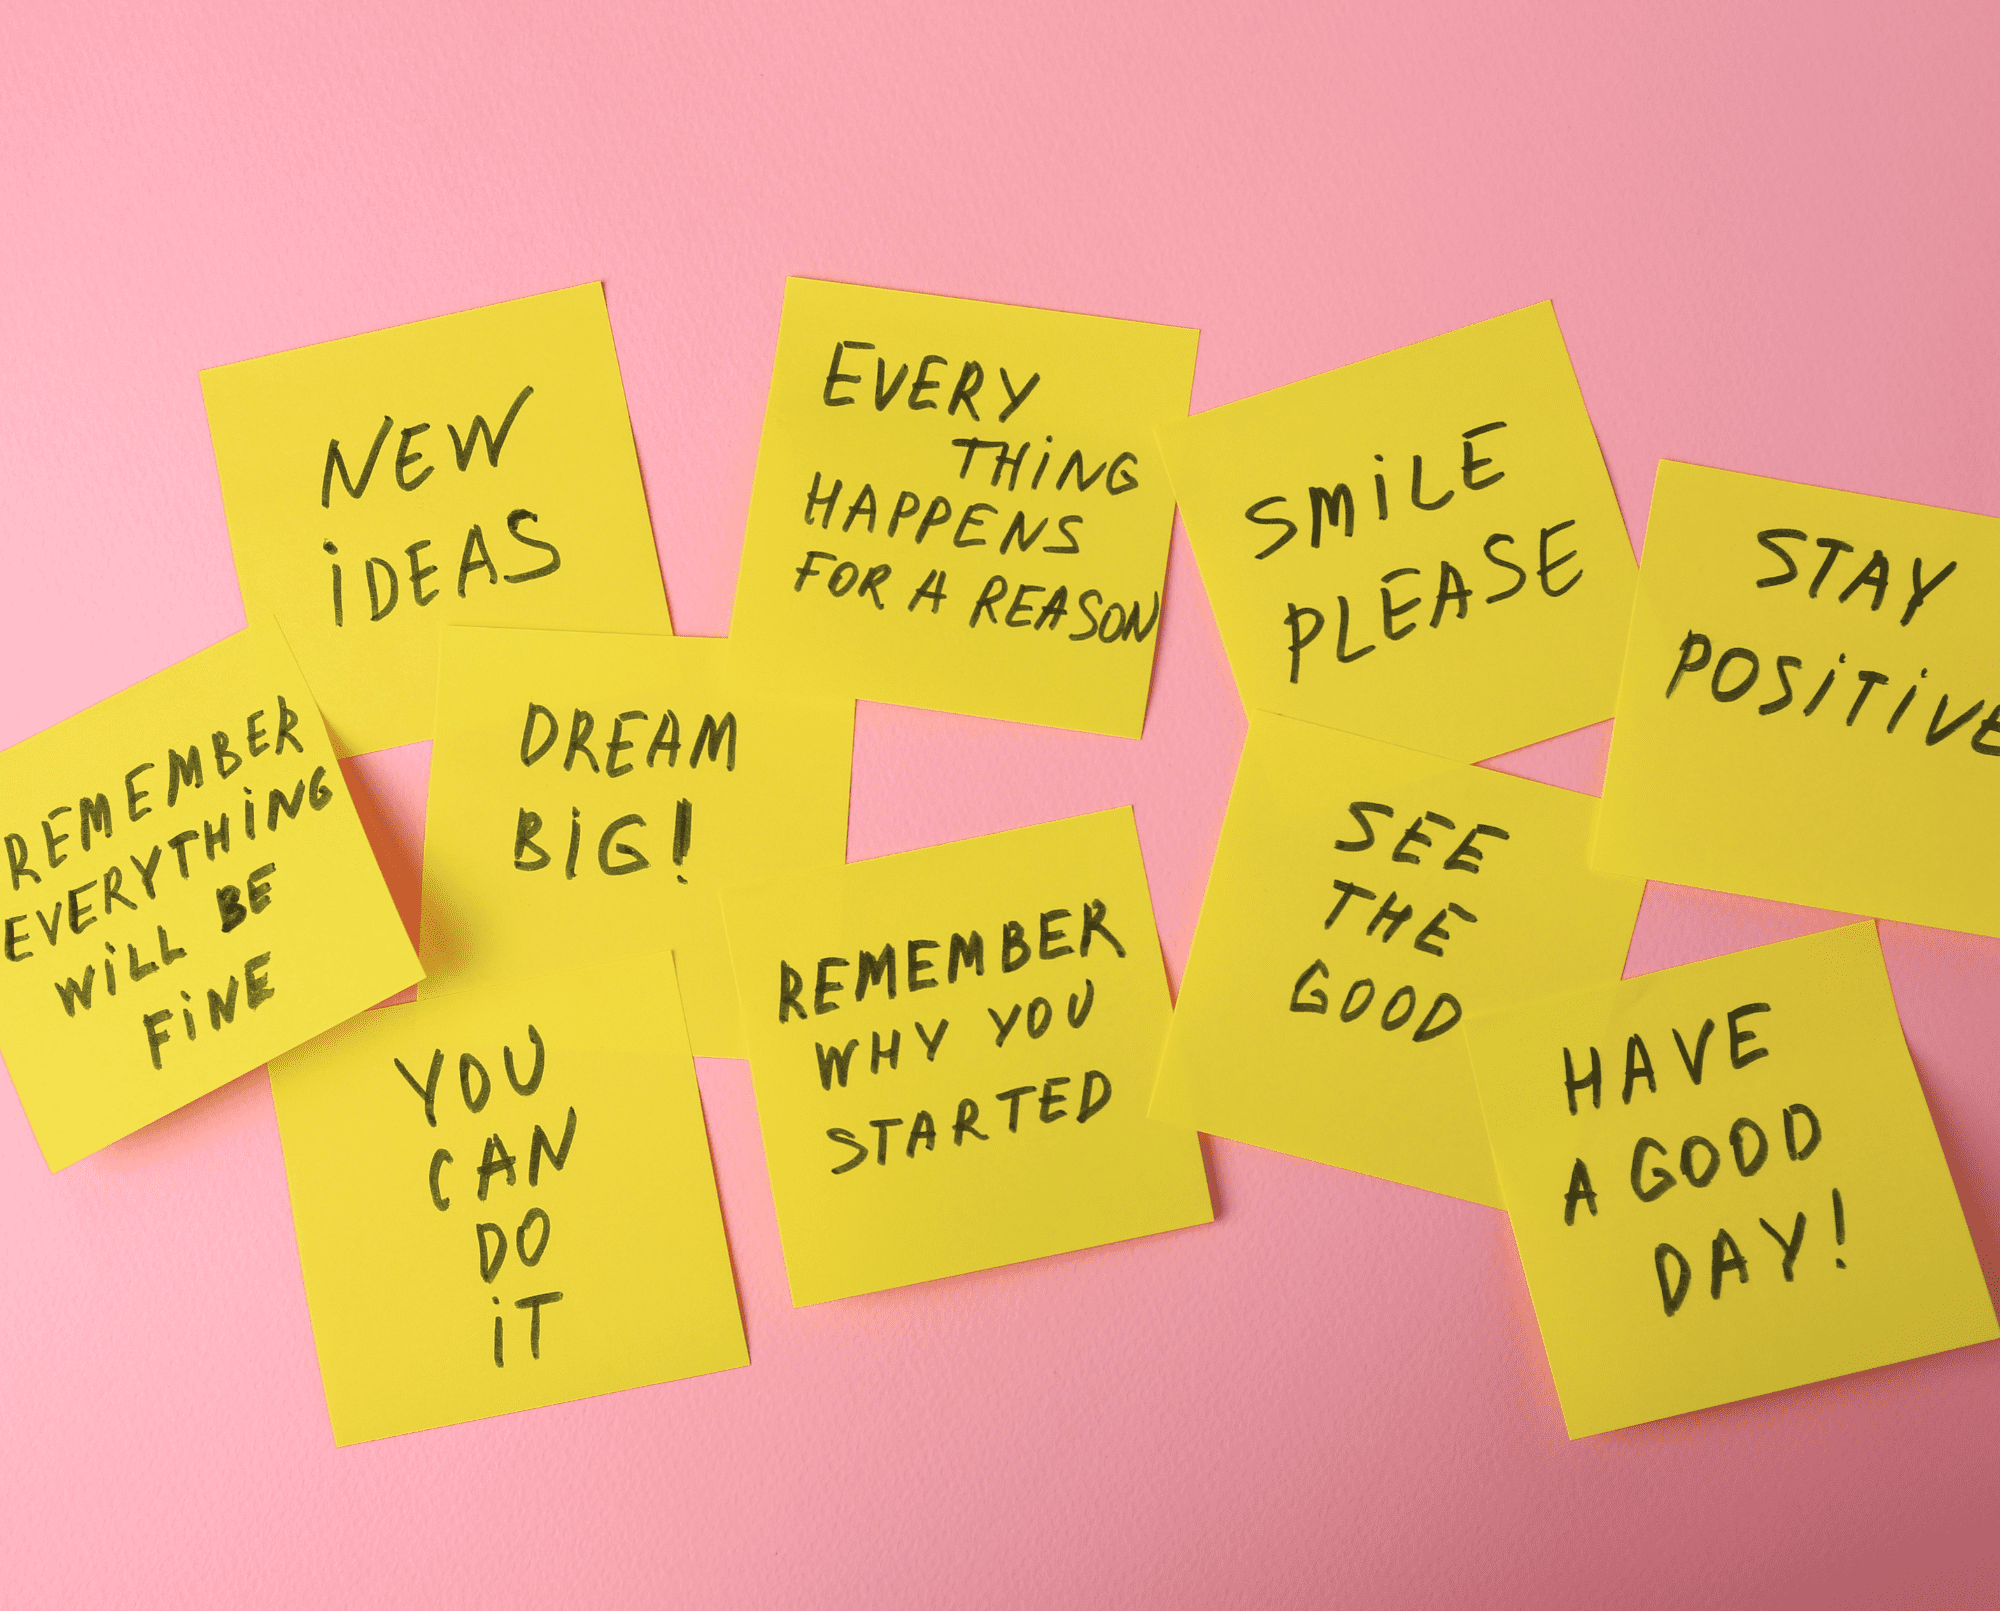 NEW
iDEAS
EVERY
THiNG
HAPPENS
FOR A REASON
SMiLE
PLEASE
STAY
POSiTiVE
REMEMBER
EVERYTHiNG
WiLL BE
FiNE
DREAM
BiG!
REMEMBER
WHY YOU
STARTED
SEE
THE
GOOD
YOU
CAN
DO
iT
HAVE
A GOOD
DAY!